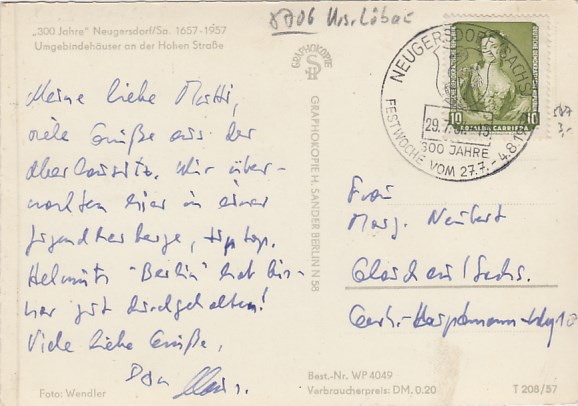 „300 Jahre" Neugersdorf/Sa. 1657-1957
Umgebindehäuser an der Hohen Straße
8706 Krs. Löbau
Meine liebe Mutti,
viele Grüße aus der
Oberlausitz. Wir über-
nachten hier in einer
Jugendherberge, tip top.
Helmuts "Berlin" hat bis-
her gut durchgehalten!
Viele liebe Grüße,
Dein
Foto: Wendler
GRAPHOKOPIE
GRAPHOKOPIE H. SANDER BERLIN N 58
Best.-Nr. WP 4049
Verbraucherpreis: DM, 0.20
T 208/57
NEUGERSDORF (SACHS)
29.7.
300 JAHRE
FESTWOCHE VOM 27.7. - 4.8.19
10 10
Frau
Marg. Neubert
Glauchau/Sachs.
Gerh.-Hauptmann-Weg 10